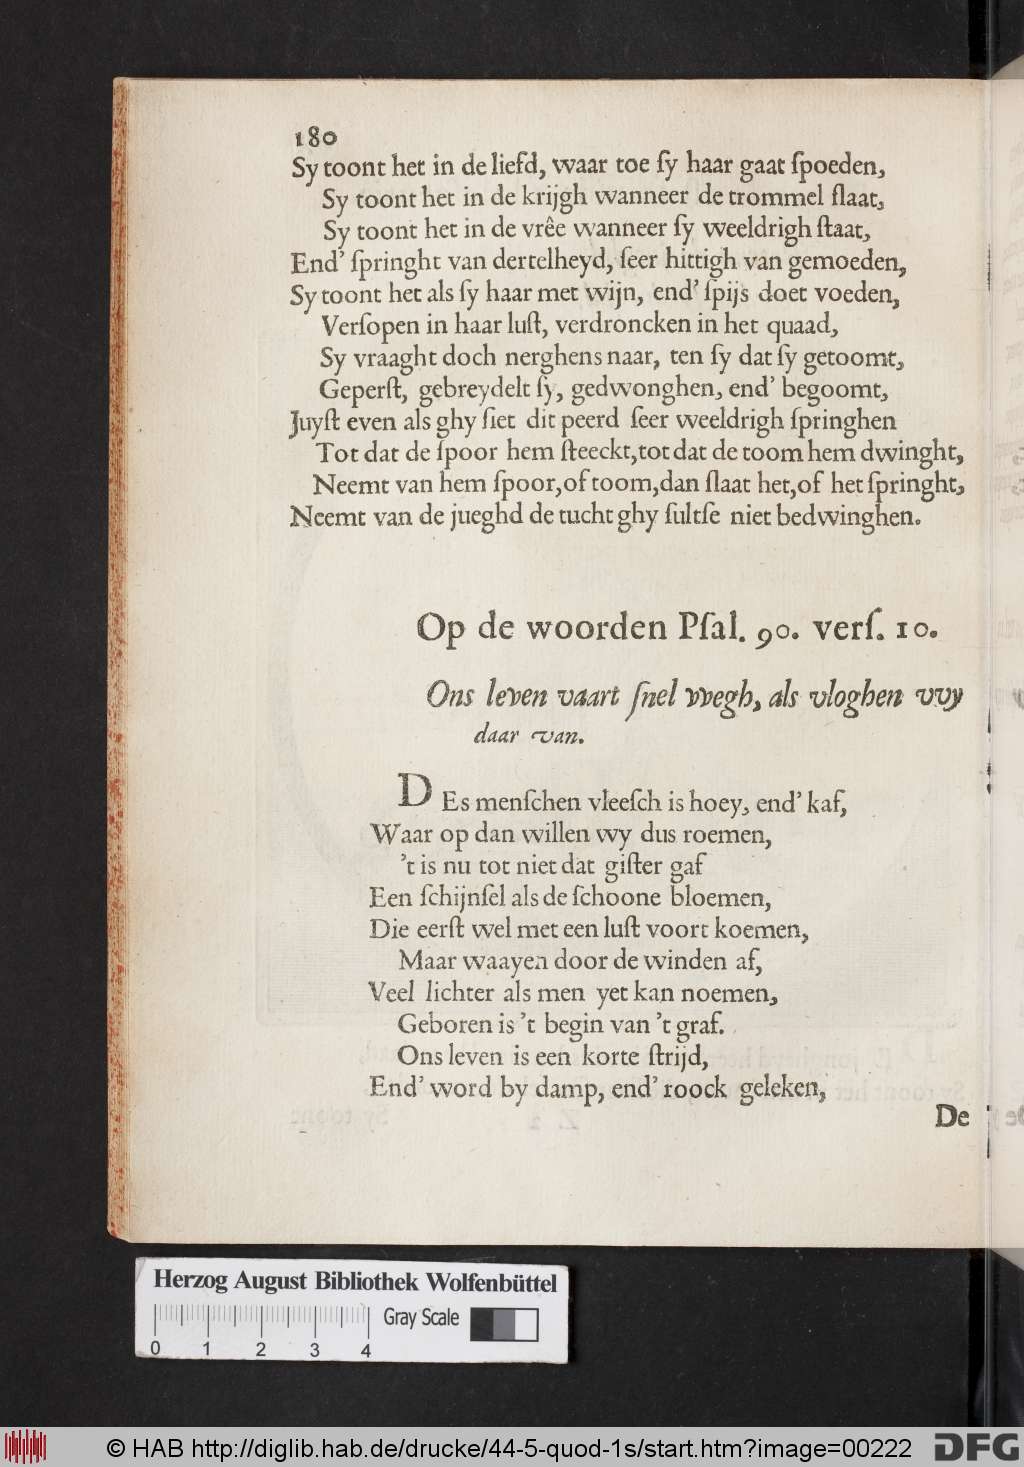 180
Sy toont het in de liefd, waar toe ſy haar gaat ſpoeden,
Sy toont het in de krijgh wanneer de trommel ſlaat,
Sy toont het in de vrêe wanneer ſy weeldrigh ſtaat,
End’ ſpringht van dertelheyd, ſeer hittigh van gemoeden,
Sy toont het als ſy haar met wijn, end’ ſpijs doet voeden,
Verſopen in haar luſt, verdroncken in het quaad,
Sy vraaght doch nerghens naar, ten ſy dat ſy getoomt,
Geperſt, gebreydelt ſy, gedwonghen, end’ begoomt,
Juyſt even als ghy ſiet dit peerd ſeer weeldrigh ſpringhen
Tot dat de ſpoor hem ſteeckt, tot dat de toom hem dwinght,
Neemt van hem ſpoor, of toom, dan ſlaat het, of het ſpringht,
Neemt van de jueghd de tucht ghy ſultſe niet bedwinghen.
Op de woorden Pſal. 90. verſ. 10.
Ons leven vaart ſnel vvegh, als vloghen vvy
daar van.
DEs menſchen vleeſch is hoey, end’ kaf,
Waar op dan willen wy dus roemen,
’t is nu tot niet dat giſter gaf
Een ſchijnſel als de ſchoone bloemen,
Die eerſt wel met een luſt voort koemen,
Maar waayen door de winden af,
Veel lichter als men yet kan noemen,
Geboren is ’t begin van ’t graf.
Ons leven is een korte ſtrijd,
End’ word by damp, end’ roock geleken,
De
Herzog August Bibliothek Wolfenbüttel
Gray Scale
0 1 2 3 4
© HAB http://diglib.hab.de/drucke/44-5-quod-1s/start.htm?image=00222
DFG